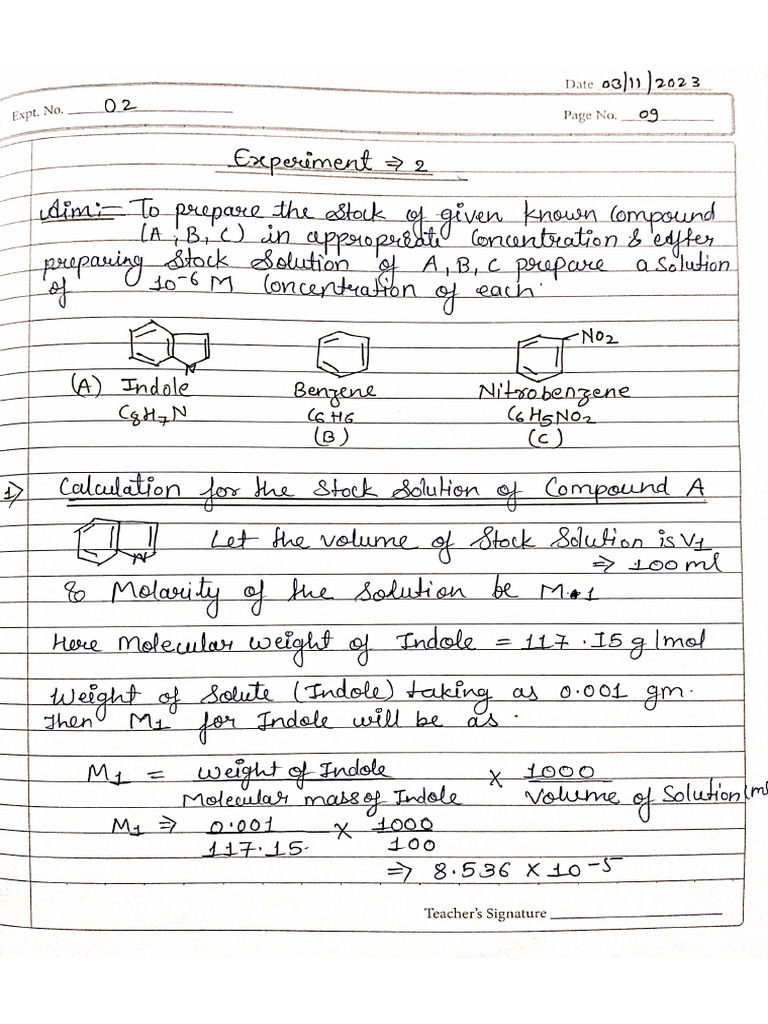 Date 03/11/2023
Expt. No. 02
Page No. 09
Experiment ⇒ 2
Aim:- To prepare the stock of given known compound
(A, B, C) in appropreate concentration & after
preparing Stock Solution of A, B, C prepare a solution
of 10⁻⁶ M concentration of each.
N NO2
(A) Indole Benzene Nitrobenzene
C8H7N C6H6 C6H5NO2
(B) (C)
1) Calculation for the Stock Solution of Compound A
N Let the volume of Stock Solution is V1
⇒ 100 ml
& Molarity of the solution be M1
Here Molecular weight of Indole = 117.15 g/mol
Weight of Solute (Indole) taking as 0.001 gm.
Then M1 for Indole will be as.
M1 = weight of Indole / Molecular mass of Indole × 1000 / Volume of Solution (ml
M1 ⇒ 0.001 / 117.15 × 1000 / 100
⇒ 8.536 × 10⁻⁵
Teacher's Signature